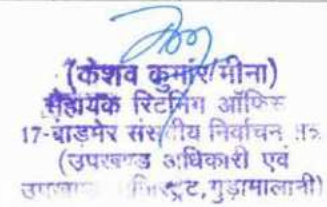 (केशव कुमार मीना)
सहायक रिटर्निंग ऑफिस
17-बाड़मेर संसदीय निर्वाचन
(उपखण्ड अधिकारी एवं
गुड़ामालानी)